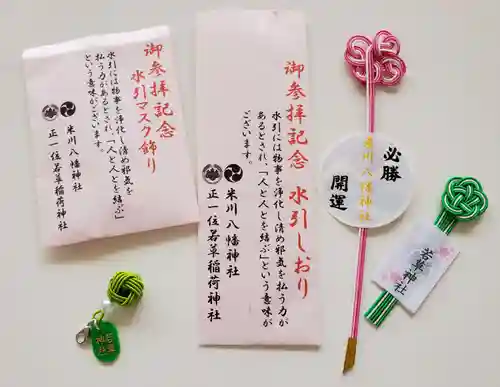 御参拝記念
水引マスク飾り
水引には物事を浄化し清め邪気を
払う力があるとされ、「人と人とを結ぶ」
という意味がございます。
米川八幡神社
正一位若草稲荷神社
御参拝記念 水引しおり
水引には物事を浄化し清め邪気を払う力が
あるとされ、「人と人とを結ぶ」という意味が
ございます。
米川八幡神社
正一位若草稲荷神社
必勝
米川八幡神社
開運
若草神社